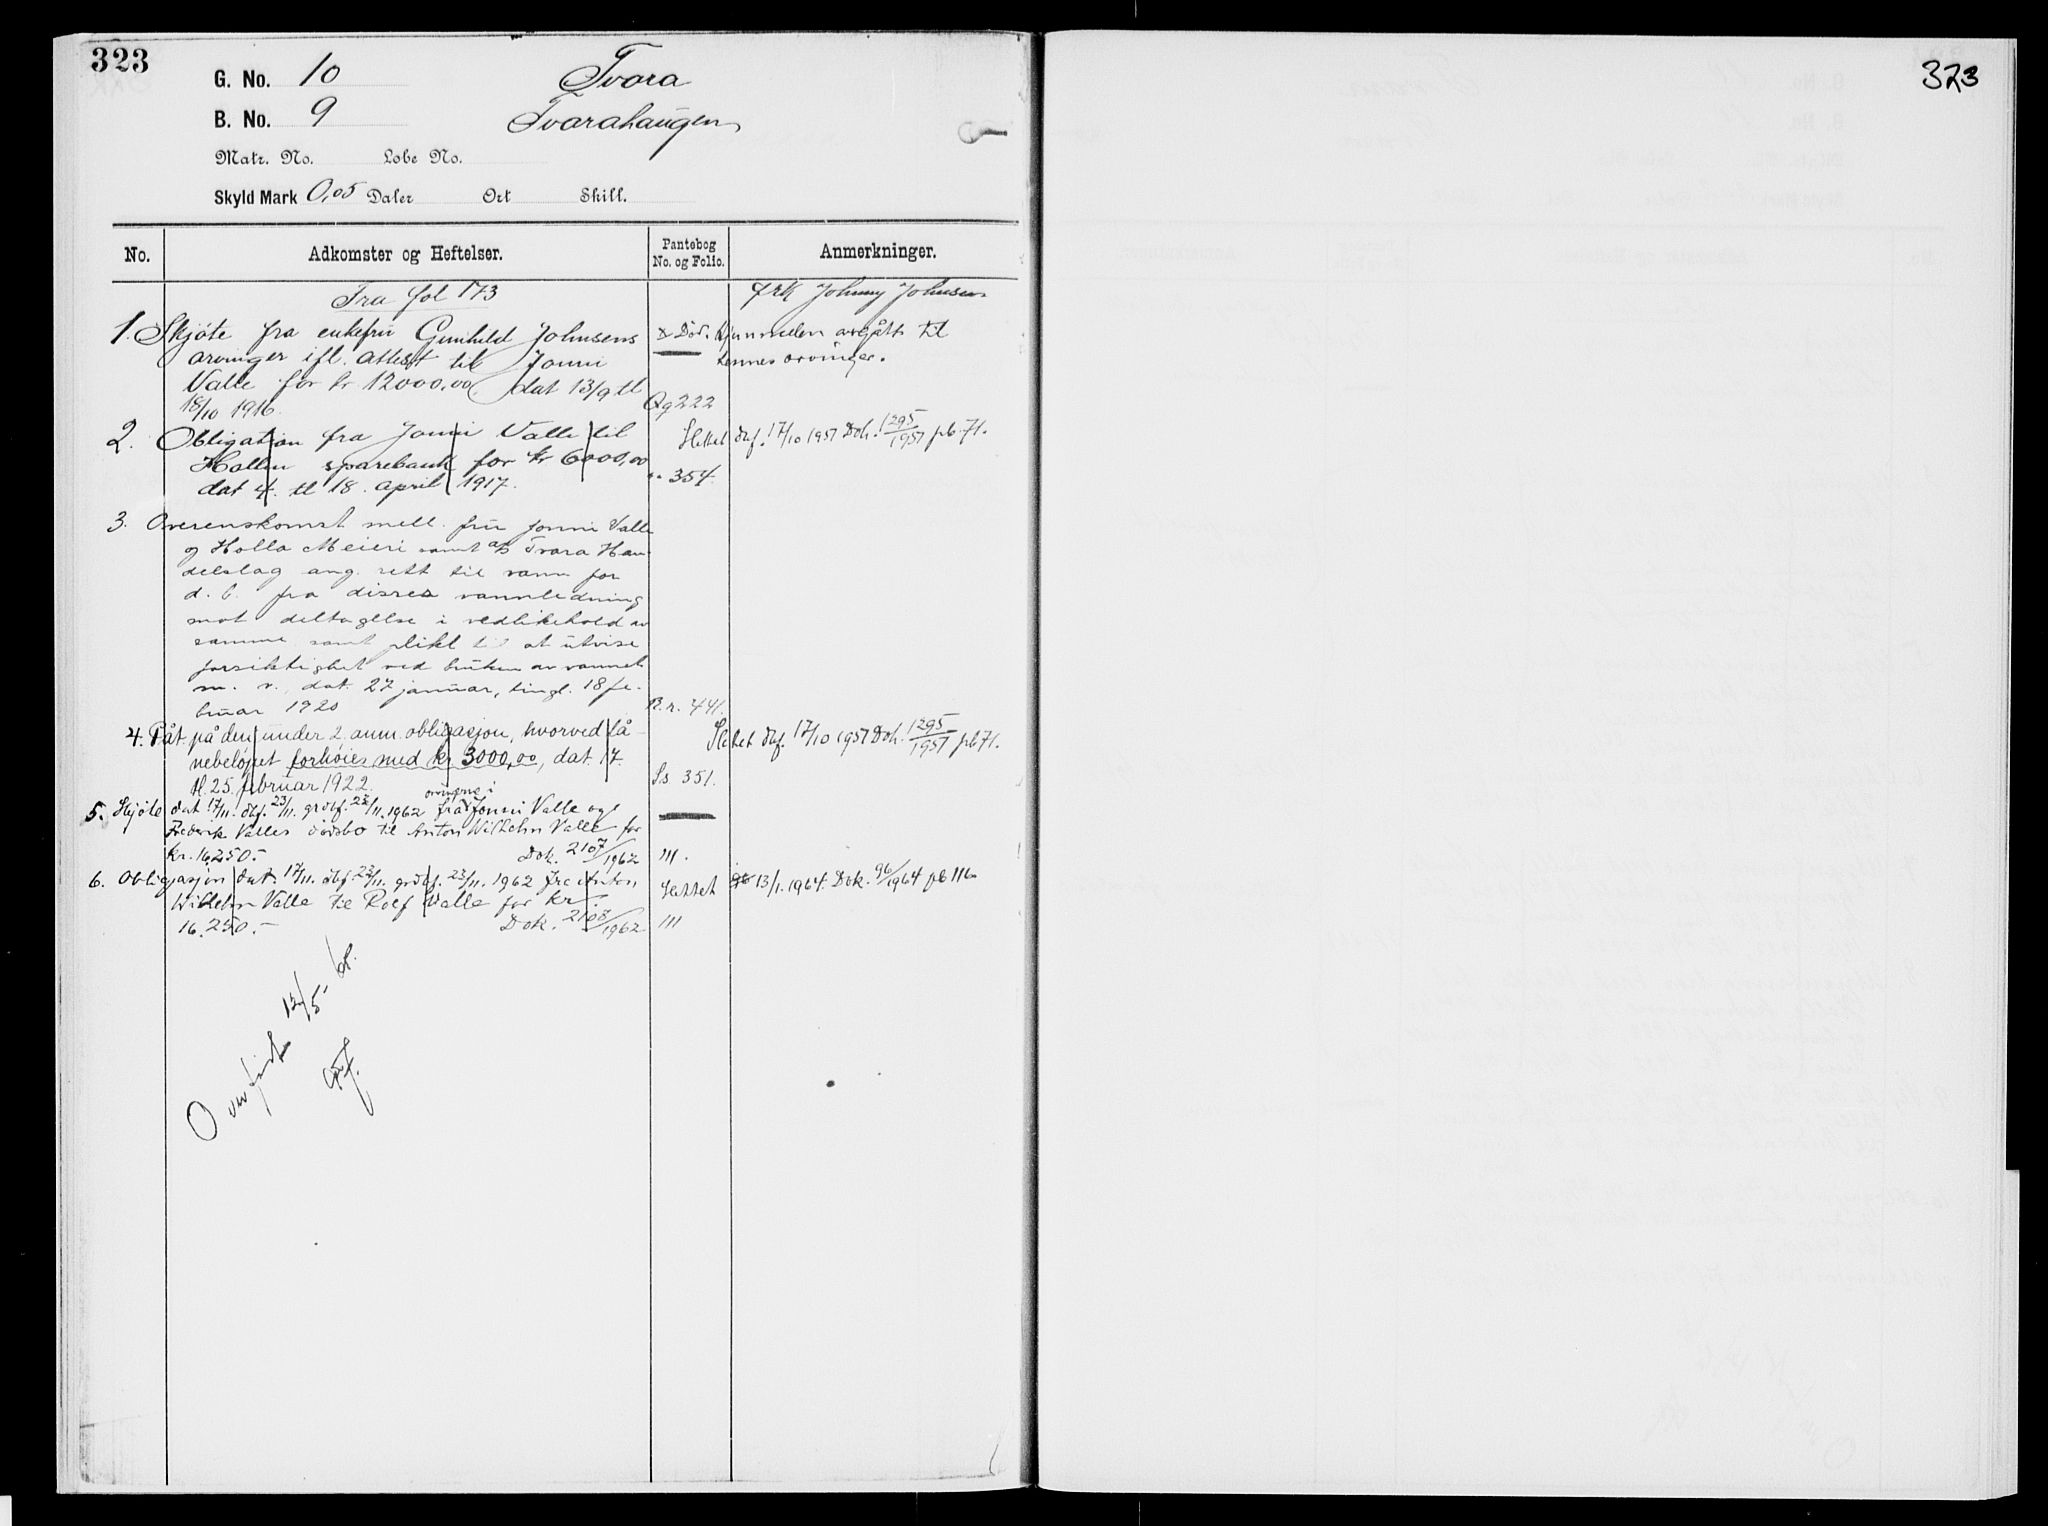 323
G. No. 10 Tvara
B. No. 9 Tvarahaugen
Matr. No. Løbe No.
Skyld Mark 0,05 Daler Ort Skill.
No. Adkomster og Heftelser. Pantebog No. og Folio. Anmerkninger.
Fra fol 173
frk Johnny Johnsen
1. Skjøte fra enkefru Gunhild Johnsens
arvinger ifl. attest til Jonni
Valle for kr 12000,00, dat 13/9 tl
18/10 1916. Qq 222
x Død. Hjemmelen overgått til
hennes arvinger.
2. Obligation fra Jonni Valle til
Hollen sparebank for kr 6000,00
dat 4. tl 18. april 1917. " 354.
Slettet dbf. 17/10 1957 Dok. 1295/1957 pb. 71.
3. Overenskomst mell. fru Jonni Valle
og Holla Meieri samt a/s Tvara Han-
delslag ang. rett til vann for
d. b. fra disses vannledning
mot deltagelse i vedlikehold av
samme samt plikt til at utvise
forsiktighet ved bruken av vannet
m. v., dat. 27 januar, tingl. 18 fe-
bruar 1920 R.r. 441.
4. Påt. på den under 2 anm. obligasjon, hvorved lå-
nebeløpet forhøies med kr 3000,00, dat. 17.
tl. 25. februar 1922. Ss 351.
Slettet dbf. 17/10 1957 Dok. 1295/1957 pb 71.
5. Skjøte dat 17/11. dbf. 23/11. grdbf. 23/11. 1962 fra arvingene i Jonni Valle og
Frederik Valles dødsbo til Anton Wilhelm Valle for
kr. 16250.- Dok. 2107/1962 111.
6. Obligasjon dat. 17/11. dbf. 23/11. grdbf. 23/11. 1962 fra Anton
Wilhelm Valle til Rolf Valle for kr.
16.250.- Dok. 2108/1962 111
Slettet 13/1. 1964. Dok. 96/1964 pb 116.
Overført 12/5-
323